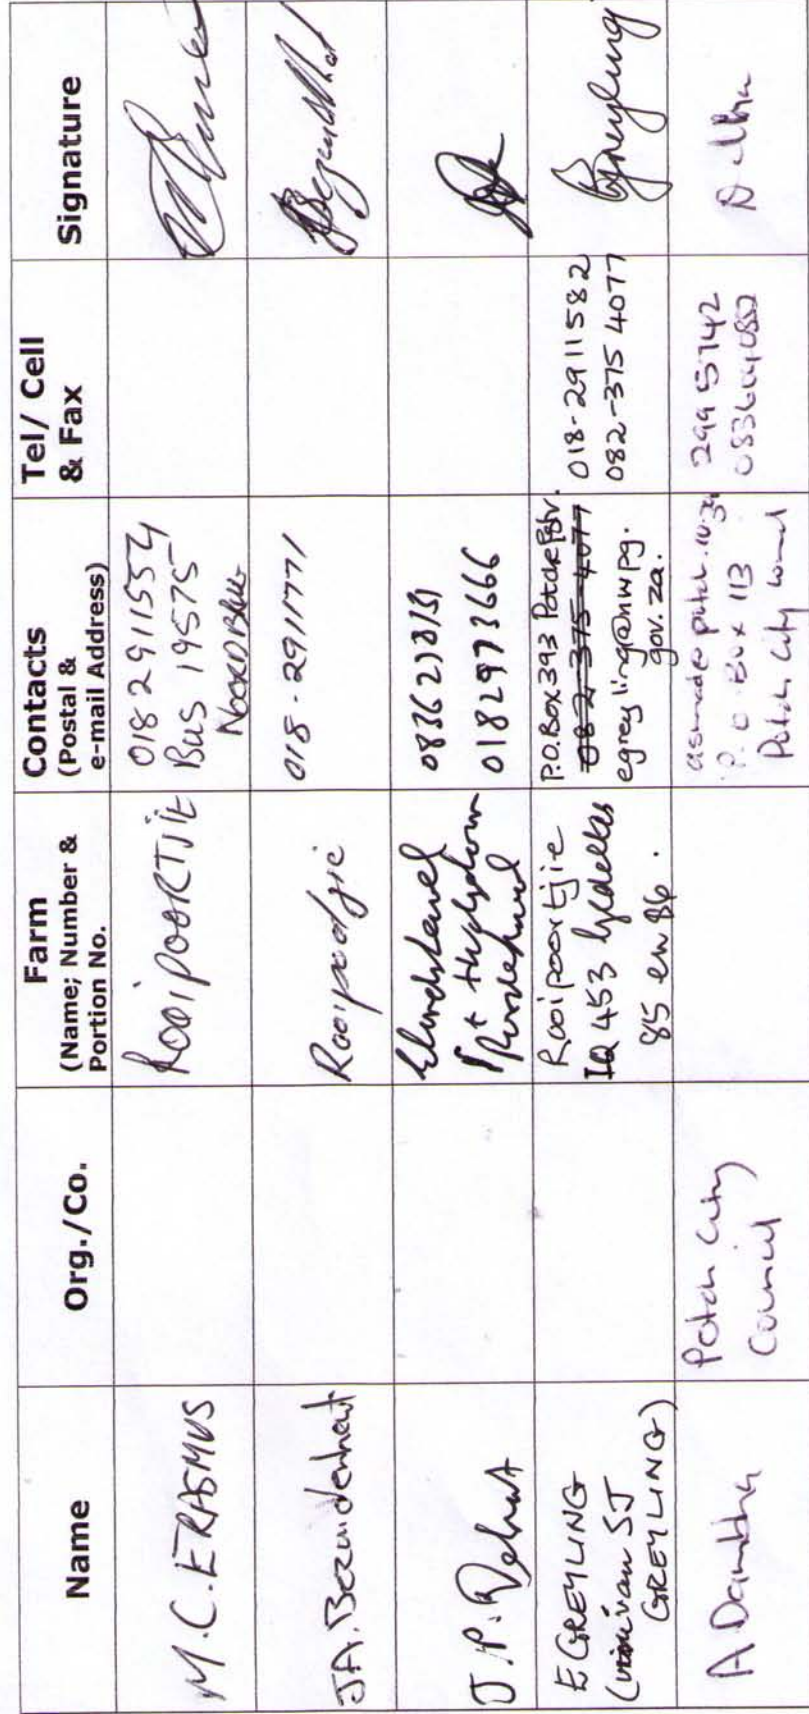 Name
Org./Co.
Farm
(Name; Number &
Portion No.
Contacts
(Postal &
e-mail Address)
Tel/ Cell
& Fax
Signature
M.C. ERASMUS
ROOIPOORTJIE
018 2911554
Bus 19575
NOORDBRUG
J.A. Bezuidenhout
Rooipoortjie
018-2911771
J.P.
018 297 3666
E GREYLING
van SJ
GREYLING)
Rooipoortjie
IQ 453 Gedeeltes
85 en 86.
P.O. Box 393 Potchefstr.
082-375-4077
egreyling@nwpg.
gov.za.
018-2911582
082-375 4077
EGreyling
A
Potch City
Council
P.O. Box 113
Potch City
299 5742